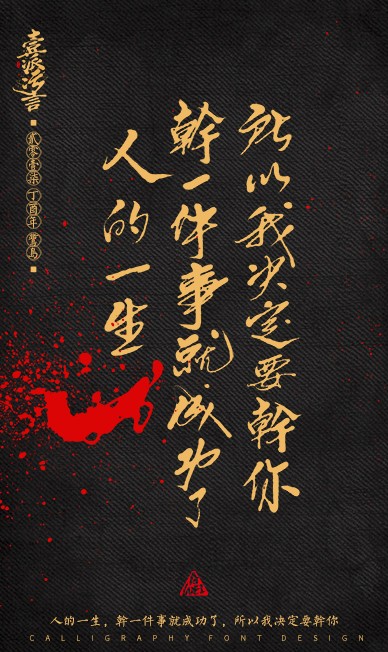 派污言
貳零壹柒 丁酉年
人的一生
幹一件事就成功了
所以我决定要幹你
人的一生，幹一件事就成功了，所以我决定要幹你
CALLIGRAPHY FONT DESIGN